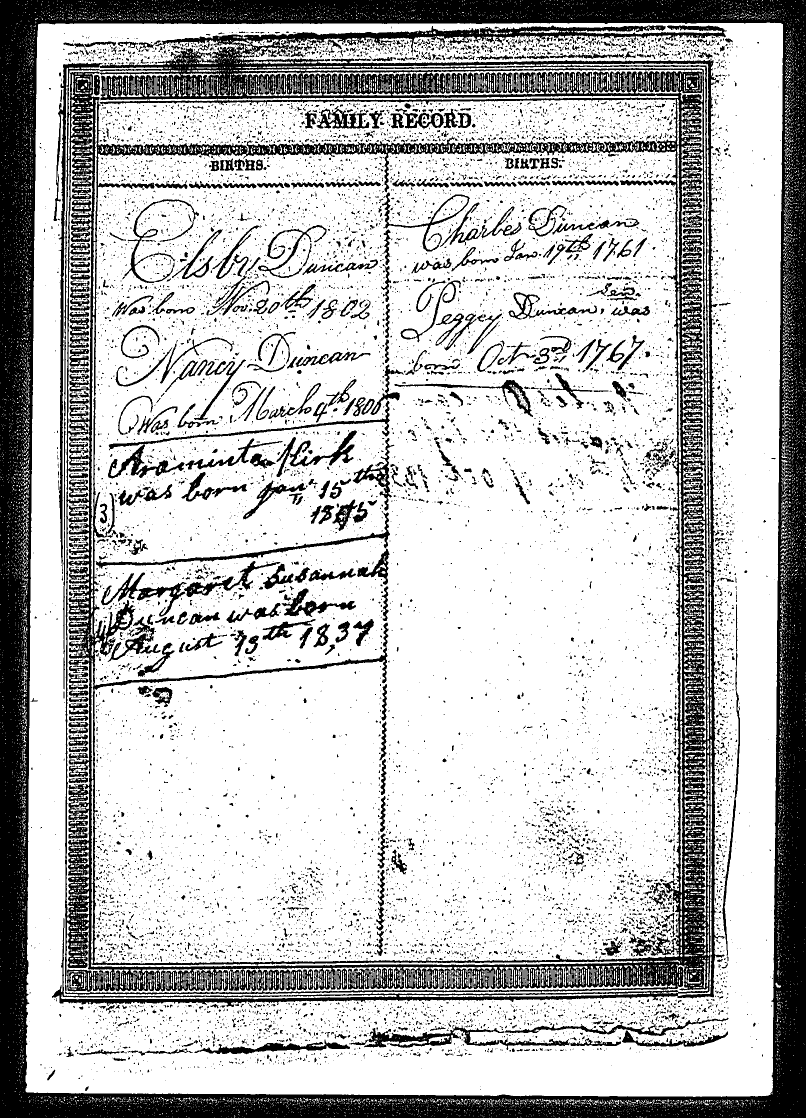 FAMILY RECORD.
BIRTHS.
Elsby Duncan
Was born Nov. 20th 1802
Nancy Duncan
Was born March 4th 1806
Araminta Kirk
was born Jany 15th
(3)
Margaret Susannah
Duncan was born
August 13th 1837
BIRTHS.
Charles Duncan
was born Jan. 19th 1761
Peggey Duncan, Sen. was
born Oct 3rd 1767.